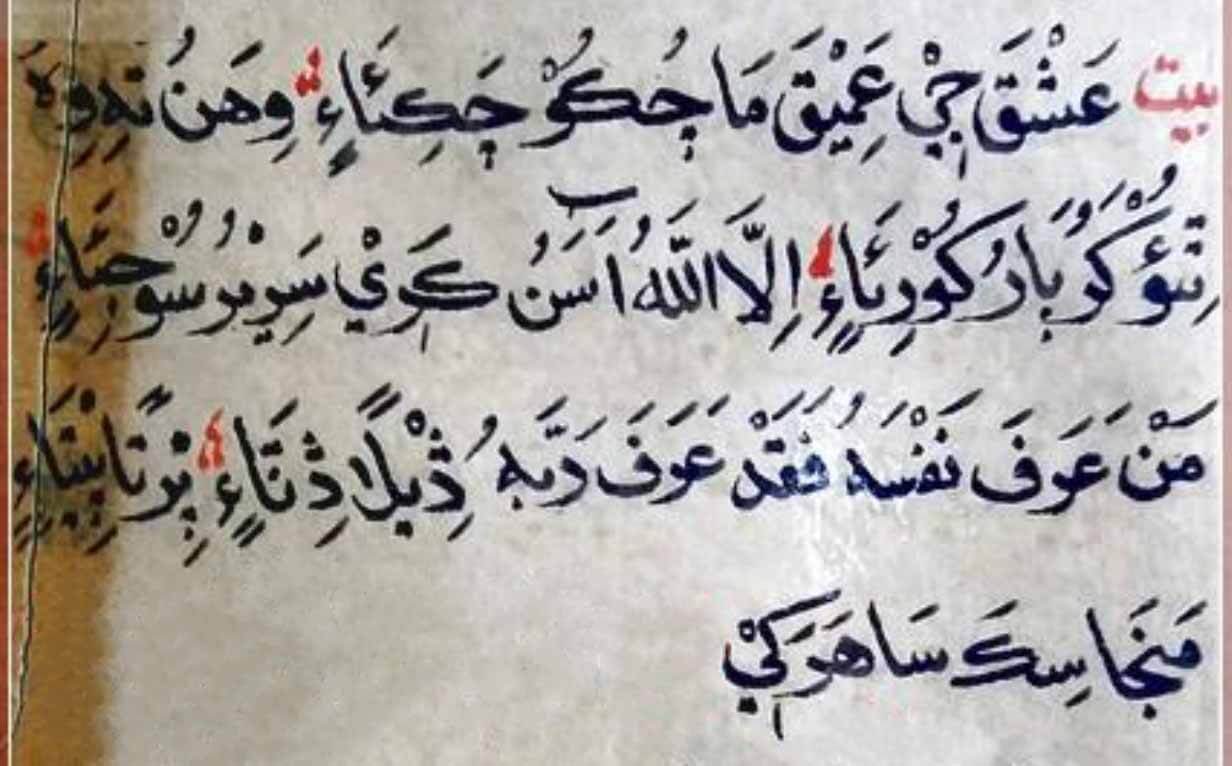 بيت عَشْقَ جٖيْ عَمِيْقَ مَا جُڪوْ جَڪِئَاءٍ وِهَنُ نَہ وِہَ
تِئؤُ ڪَرُ بَارُ ڪُوْرِيَاءٍ اِلَّا اللّٰهُ اَسَنُ ڪَرِيْ سَرِيْرُ سُوْجَهَاءٍ
مَنْ عَرَفَ نَفْسَهُ فَقَدْ عَرَفَ رَبَّهٗ ڎِيْلاً ڎِنَاءٍ پِرْتَا پِيْتَاءٍ
مَنجَا سِڪَ سَاهَرَ ڪٖيْ